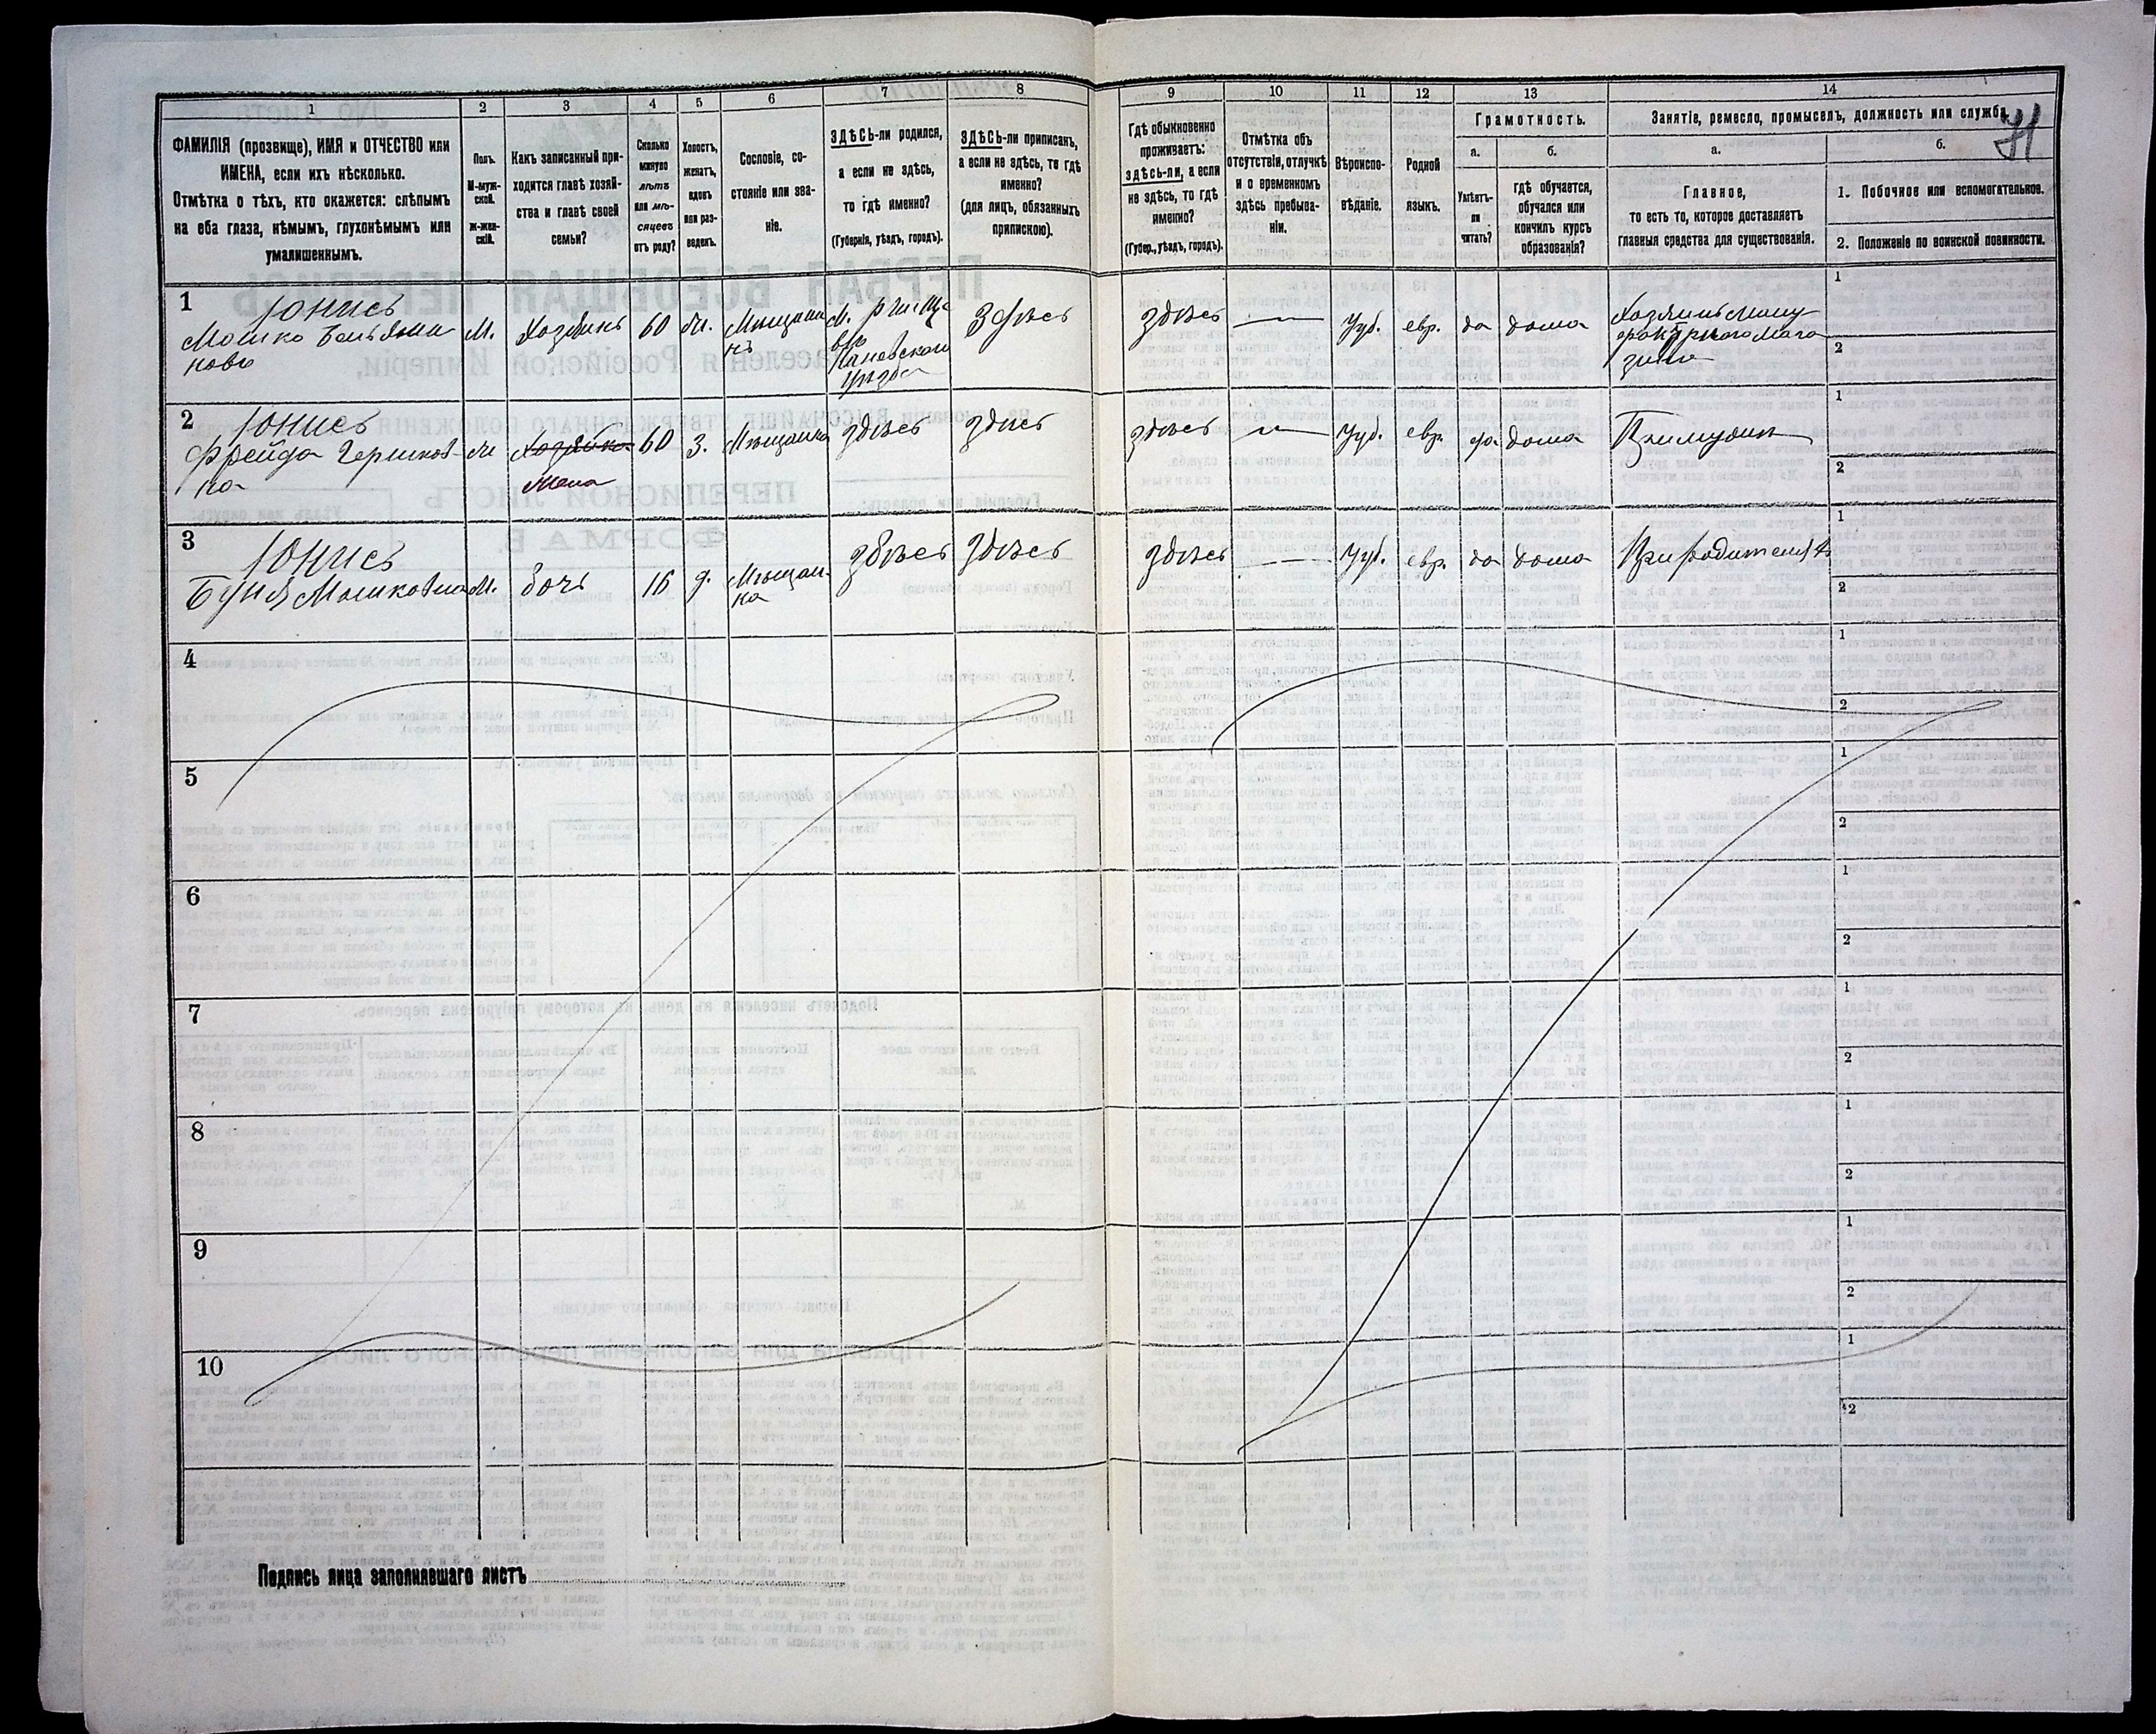 1
2
3
4
5
6
7
8
9
10
11
12
13
14
ФАМИЛІЯ (прозвище), ИМЯ и ОТЧЕСТВО или
ИМЕНА, если ихъ нѣсколько.
Отмѣтка о тѣхъ, кто окажется: слѣпымъ
на оба глаза, нѣмымъ, глухонѣмымъ или
умалишеннымъ.
Полъ.
М-муж-
ской.
Ж-жен-
скій.
Какъ записанный при-
ходится главѣ хозяй-
ства и главѣ своей
семьи?
Сколько
минуло
лѣтъ
или мѣ-
сяцевъ
отъ роду?
Холостъ,
женатъ,
вдовъ
или раз-
веденъ.
Сословіе, со-
стояніе или зва-
ніе.
ЗДѢСЬ-ли родился,
а если не здѣсь,
то гдѣ именно?
(Губернія, уѣздъ, городъ).
ЗДѢСЬ-ли приписанъ,
а если не здѣсь, то гдѣ
именно?
(для лицъ, обязанныхъ
припискою).
Гдѣ обыкновенно
проживаетъ:
здѣсь-ли, а если
не здѣсь, то гдѣ
именно?
(Губер., уѣздъ, городъ).
Отмѣтка объ
отсутствіи, отлучкѣ
и о временномъ
здѣсь пребыва-
ніи.
Вѣроиспо-
вѣданіе.
Родной
языкъ.
Грамотность.
а.
б.
Умѣетъ-
ли
читать?
гдѣ обучается,
обучался или
кончилъ курсъ
образованія?
Занятіе, ремесло, промыселъ, должность или служба.
а.
б.
Главное,
то есть то, которое доставляетъ
главныя средства для существованія.
1. Побочное или вспомогательное.
2. Положеніе по воинской повинности.
1
Юнисъ
Мошко
М.
Хозяинъ
60
Мѣщани
нъ
Каневского
уѣзда
Здѣсь
здѣсь
Іуд.
евр.
да
дома
Хозяинъ ману
фактурного мага
зина
1
2
2
Юнисъ
Фрейда Гершков-
на
Хозяйка
жена
60
З.
Мѣщанка
здѣсь
здѣсь
здѣсь
Іуд.
евр.
да
дома
При мужѣ
1
2
3
Юнисъ
Буня Мошковна
дочь
16
д.
Мѣщан-
ка
здѣсь
здѣсь
здѣсь
Іуд.
евр.
да
дома
При родителяхъ
1
2
4
1
2
5
1
2
6
1
2
7
1
2
8
1
2
9
1
2
10
1
2
Подпись лица заполнявшаго листъ